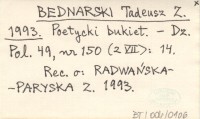 BEDNARSKI Tadeusz Z.
1993. Poetycki bukiet. – Dz.
Pol. 49, nr 150 (2 VII): 14.
Rec. o: RADWAŃSKA-
-PARYSKA Z. 1993.